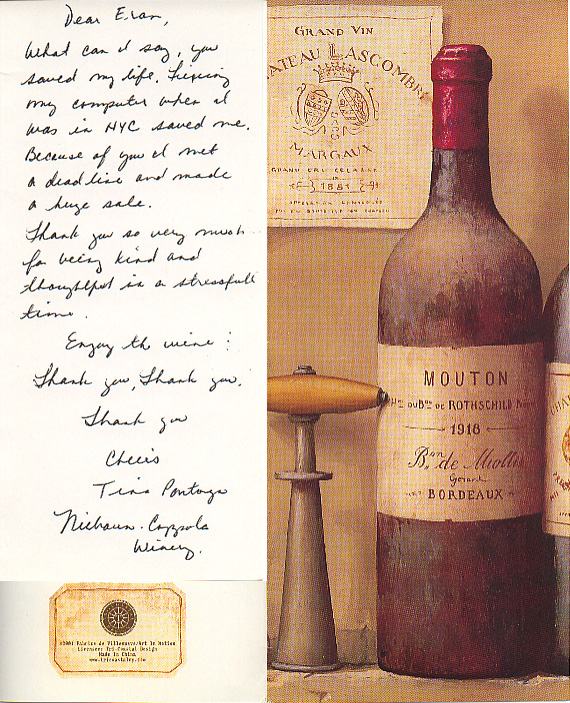 Dear Eran,
What can I say, you
saved my life. Fixing
my computer when I
was in NYC saved me.
Because of you I met
a deadline and made
a huge sale.
Thank you so very much
for being kind and
thoughtful in a stressfull
time.
Enjoy the wine!
Thank you, Thank you,
Thank you
Cheers
Tina
Niebaum-Coppola
Winery.
©2001 Fabrice de Villeneuve/Art in Motion
Licensee: Tri-Coastal Design
Made in China
www.tricoastaley.com
GRAND VIN
CHATEAU LASCOMBES
MARGAUX
GRAND CRU CLASSÉ
1881
MOUTON
DE ROTHSCHILD
1918
Bon de Miollis
Gérant
BORDEAUX